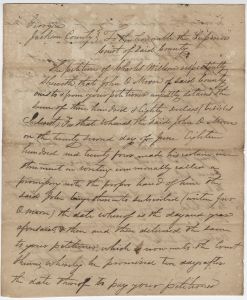 Georgia
Jackson County } To the Honorable the Superior
Court of said County
The petition of Harold Williams respectfully
Sheweth that John D Moon of said County
unto your petitioner unjustly detains the
sum of three hundred & Eighty dollars besides
Interest For that whereas the said John D Moon
on the twenty second day of June Eighteen
hundred and twenty four made his certain in-
strument in writing commonly called a
promissory note the proper hand of him the
said John being thereunto subscribed (written Jno
D Moon) the date whereof is the day and year
aforesaid & then and there delivered the same
to your petitioner which is now unto the Court
shewn, whereby he promised ten days after
the date thereof to pay your petitioner